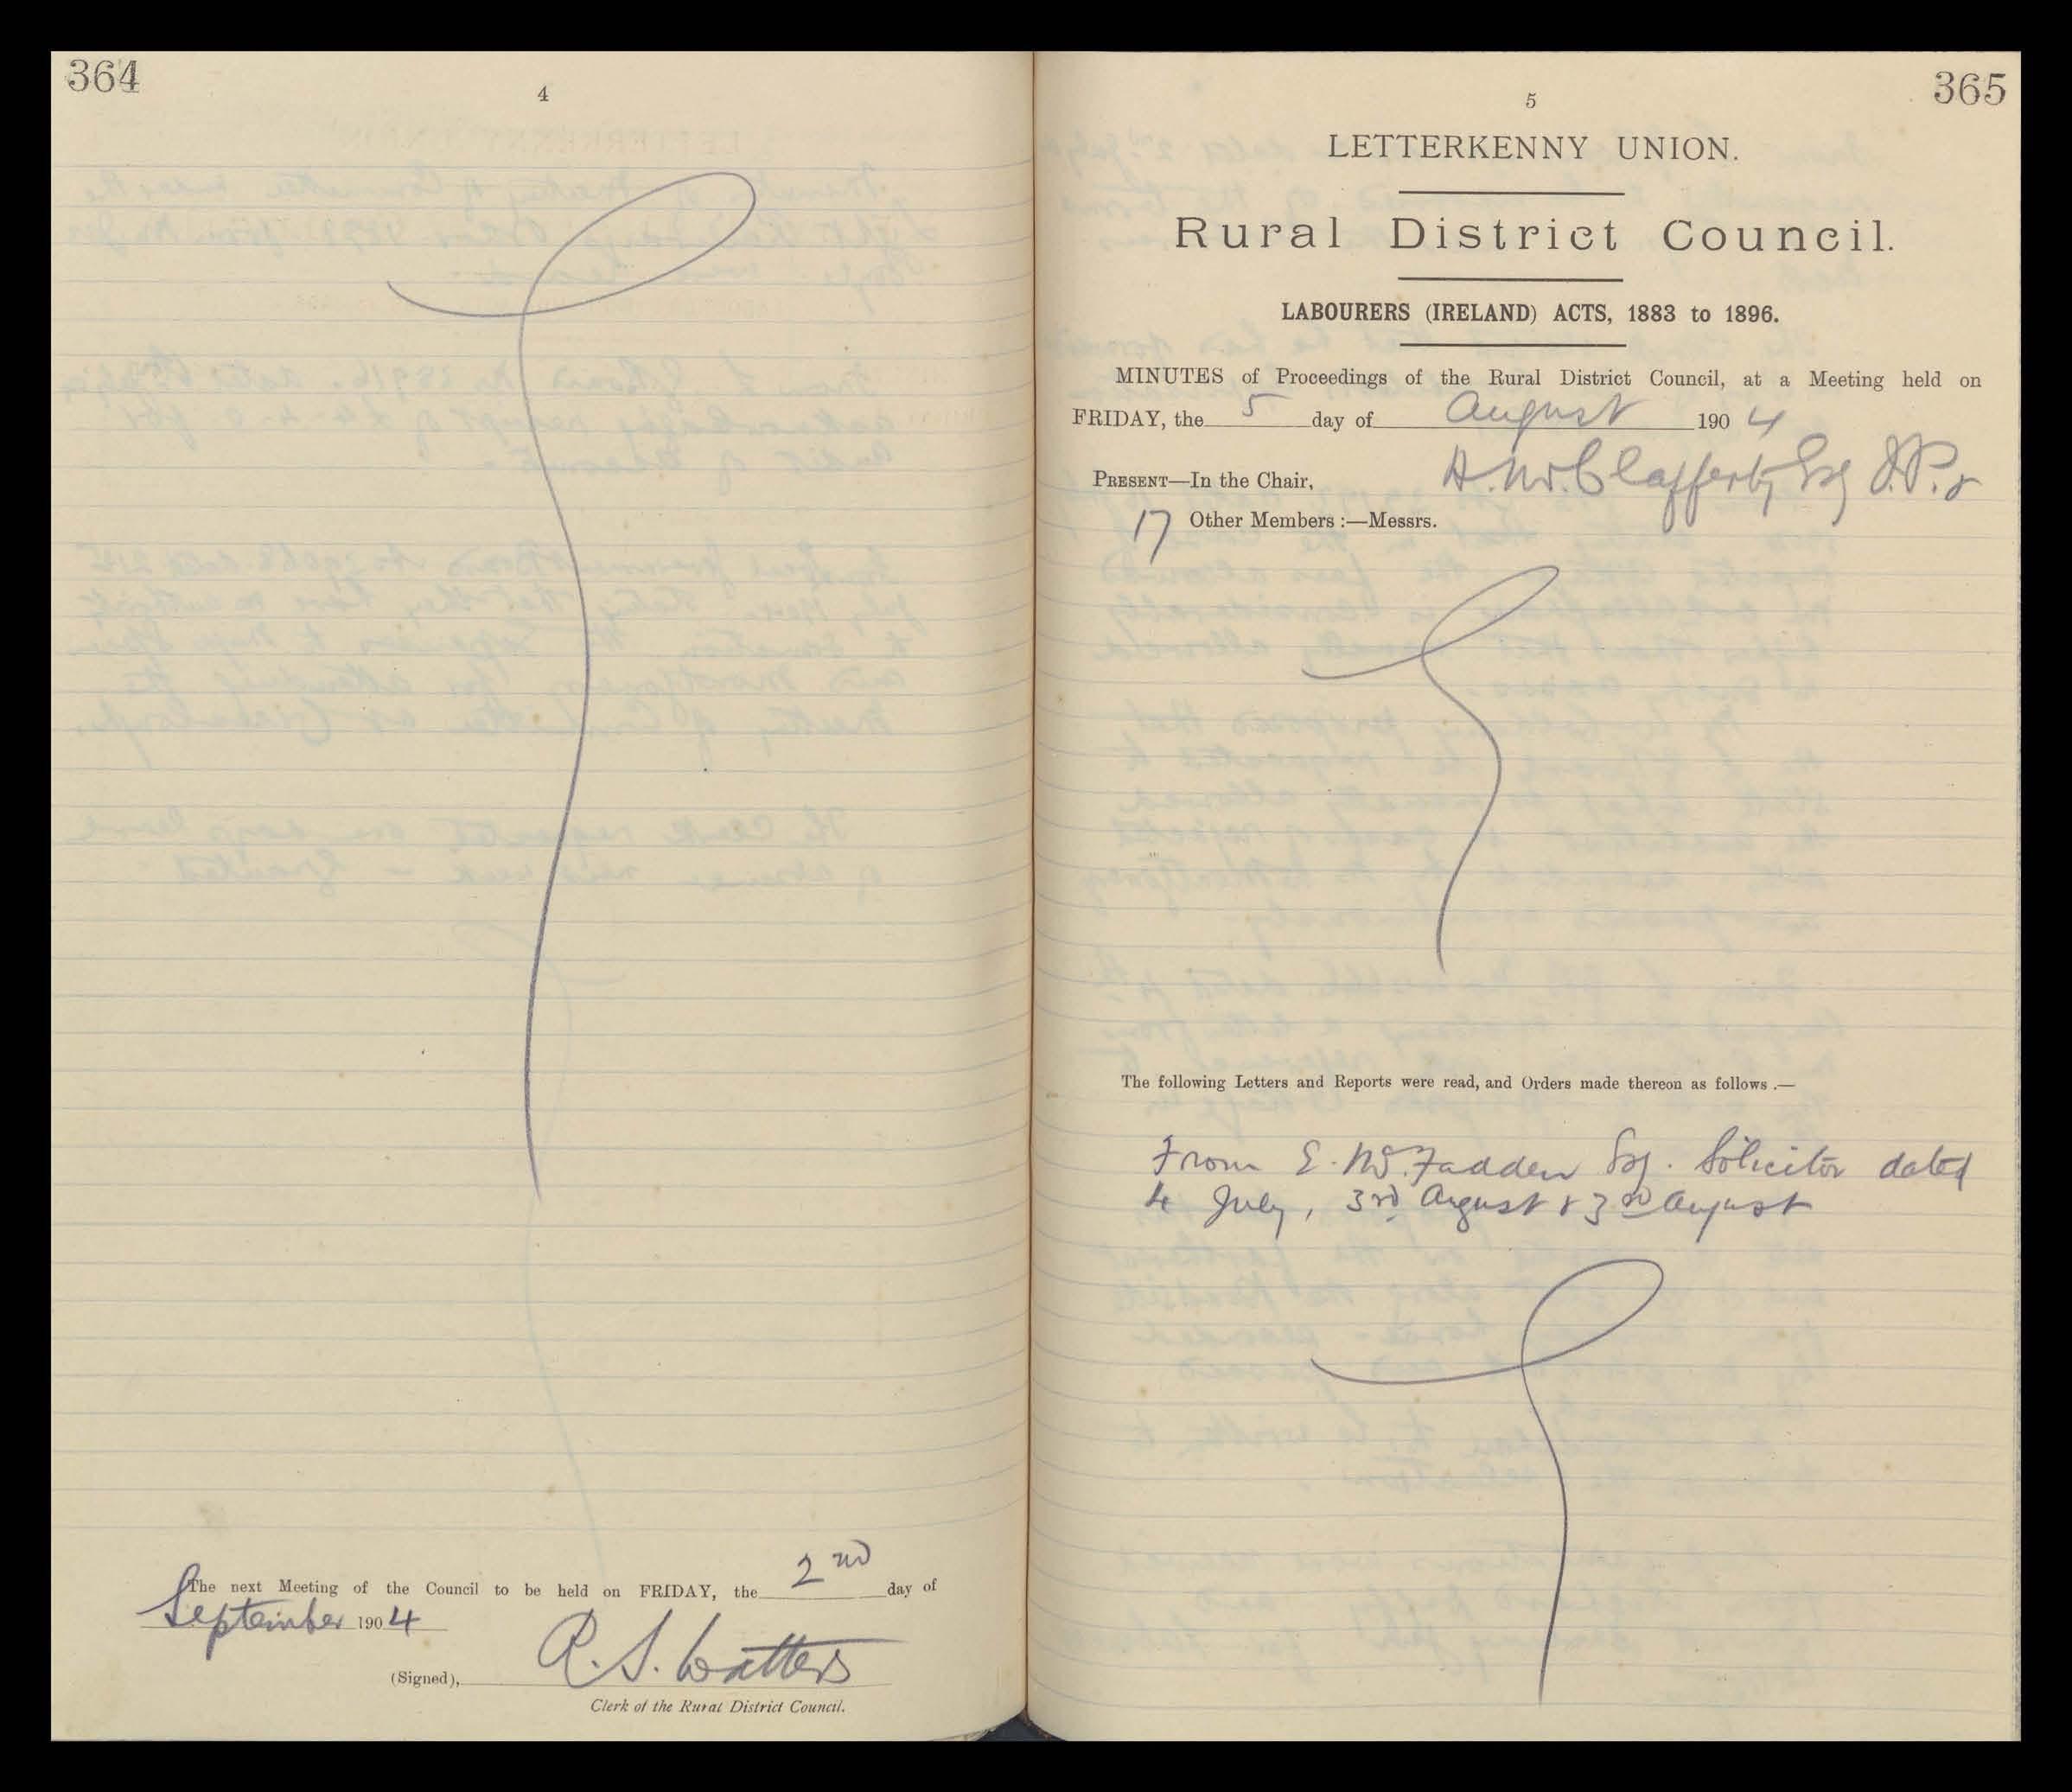 364
4
The next Meeting of the Council to be held on FRIDAY, the 2nd day of
September 1904
(Signed), R. S. Watters
Clerk of the Rural District Council.
365
5
LETTERKENNY UNION.
Rural District Council.
LABOURERS (IRELAND) ACTS, 1883 to 1896.
MINUTES of Proceedings of the Rural District Council, at a Meeting held on
FRIDAY, the 5 day of August 1904
PRESENT—In the Chair, H. McClafferty Esq J.P. &
17 Other Members :—Messrs.
The following Letters and Reports were read, and Orders made thereon as follows .—
From E. McFadden Esq. Solicitor dated
4 July, 3rd August & 3rd August